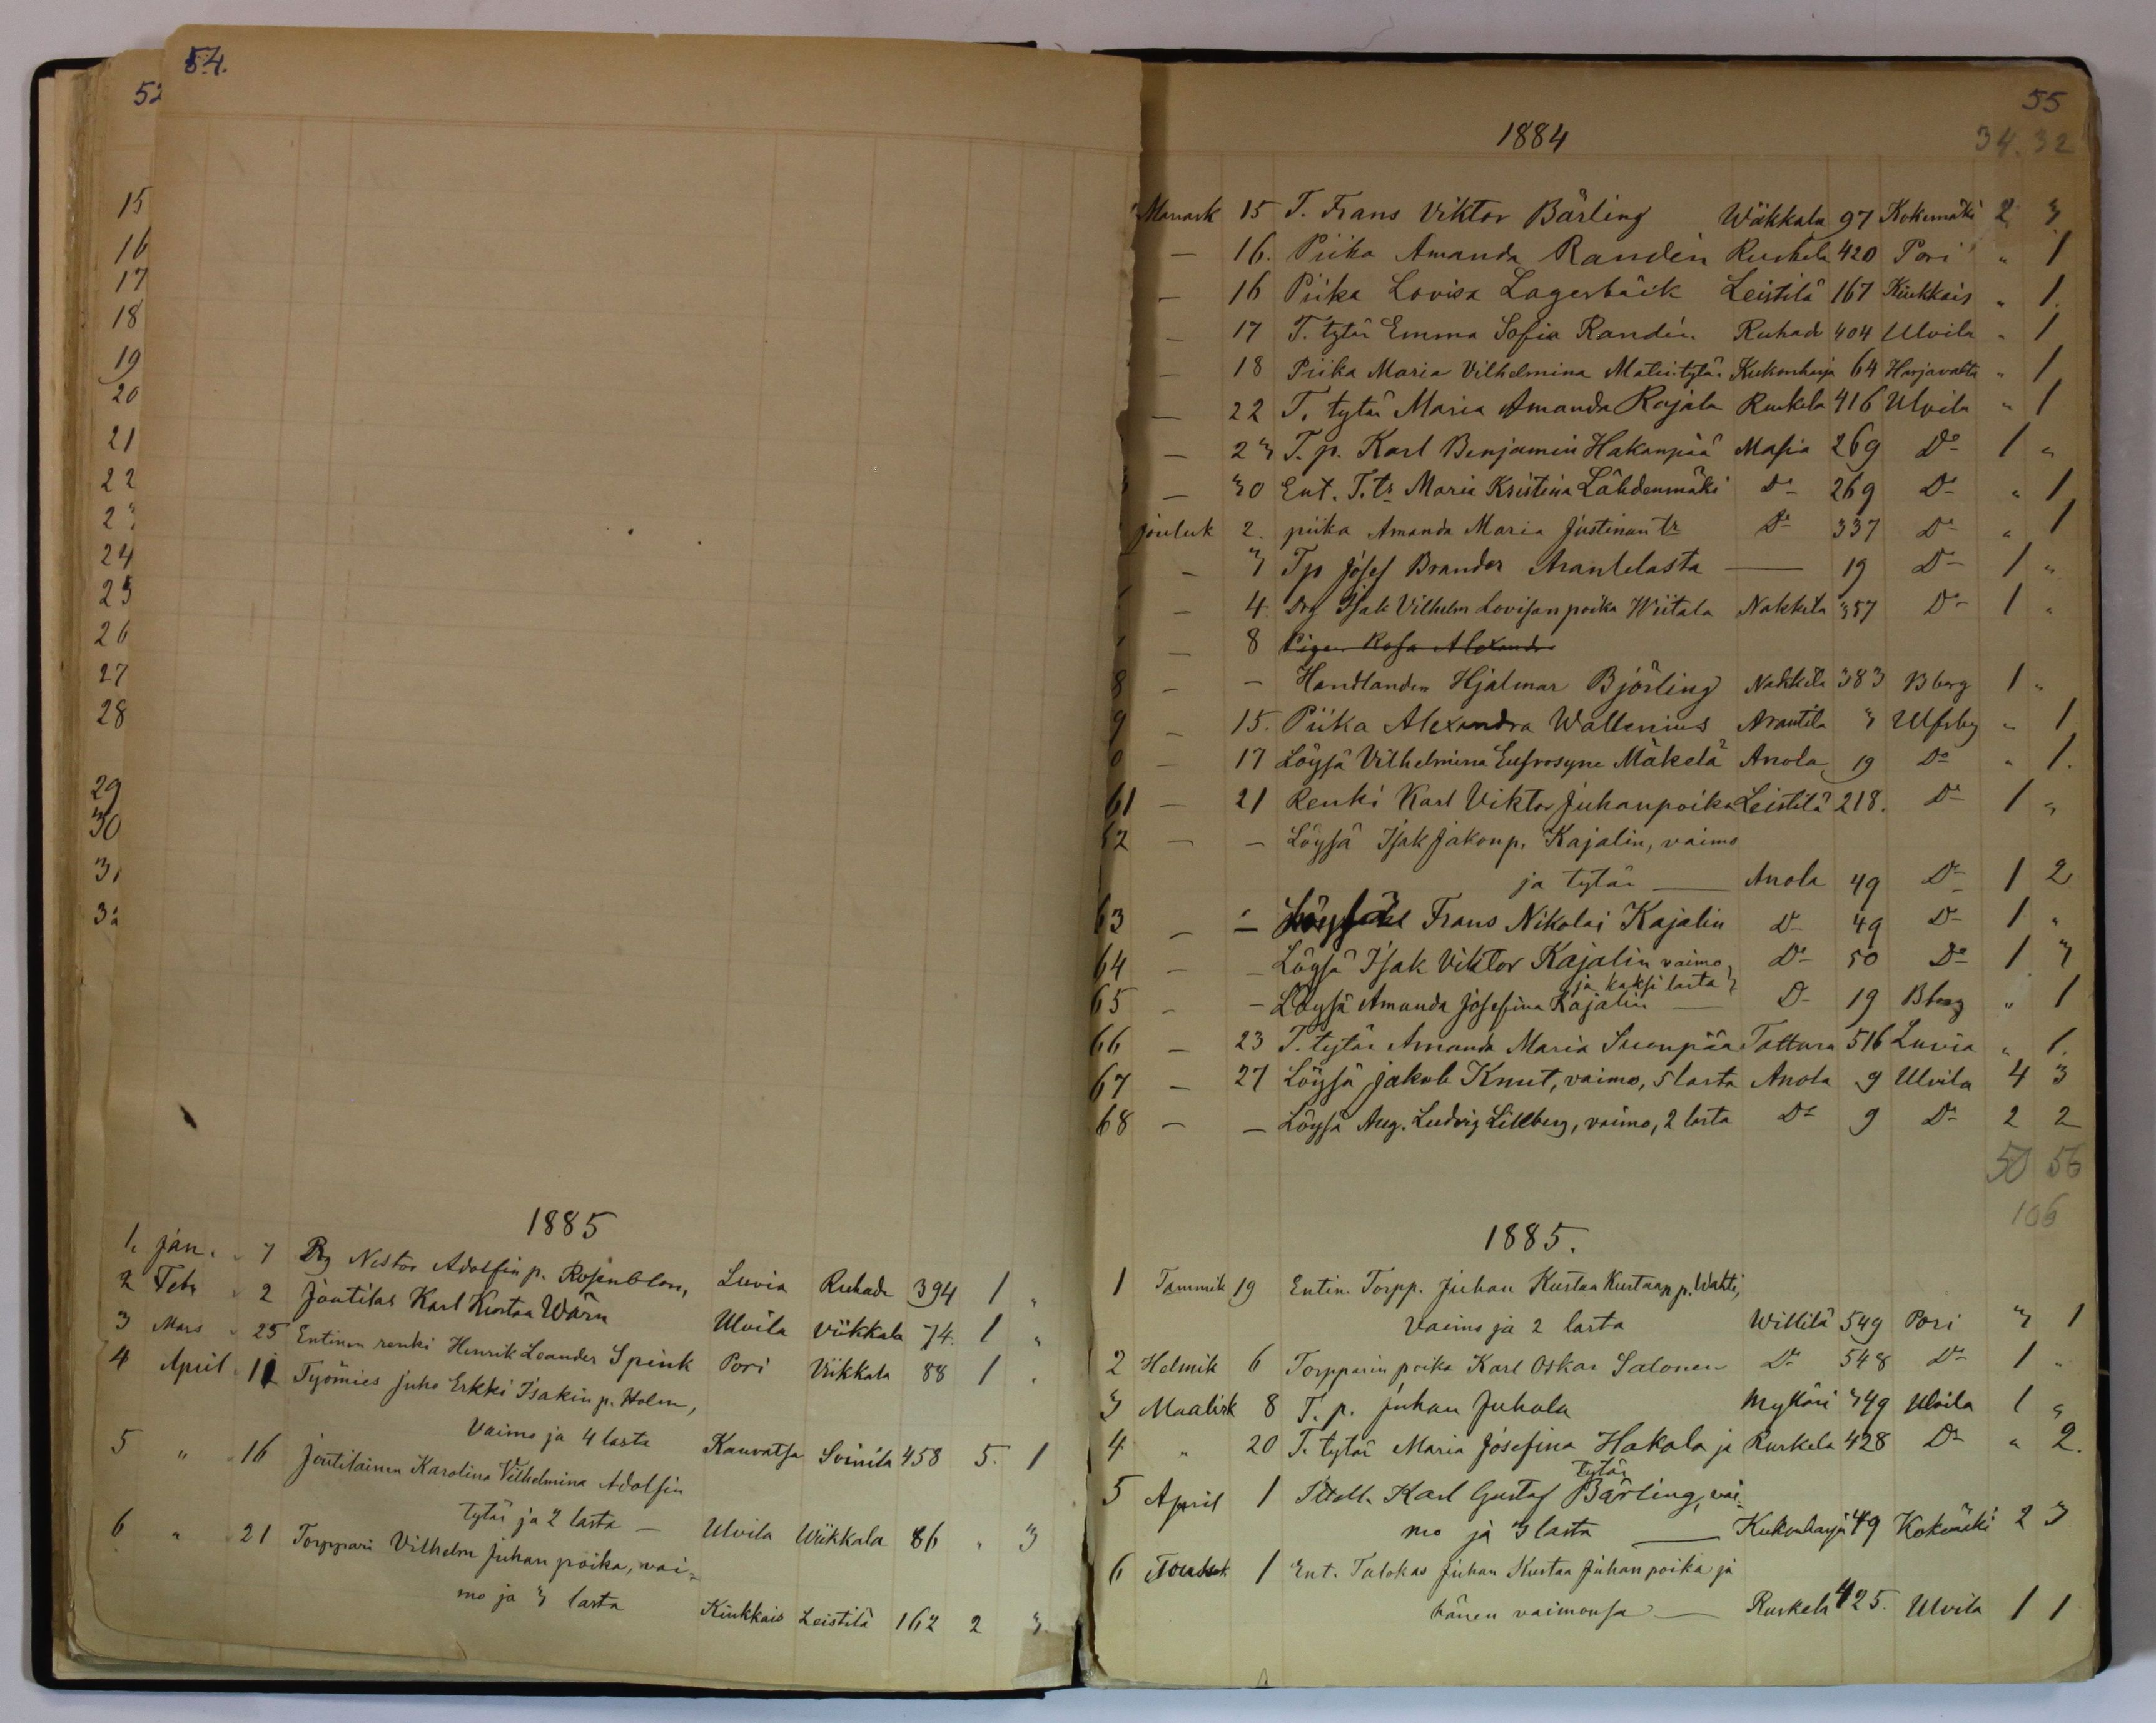 52
15
16
17
18
19
20
21
22
2
24
25
26
27
28
29
30
31
32
54.
1885
1. Jan. 7 Drg Nestor Adolfin p. Rosenblom, Luvia Ruhade 394 1 "
2 Febr 2 Joutilas Karl Kustaa Wärn Ulvila Viikkala 74. 1 "
3 Mars 25 Entinen renki Henrik Leander Spink Pori Viikkala 88 1 "
4 April 11 Työmies Juho Erkki Isakin p. Holm,
Vaimo ja 4 lasta Kauvatsa Soinila 458 5. 1
5 " 16 Joutilainen Karolina Vilhelmina Adolfin
tytär ja 2 lasta — Ulvila Wiikkala 86 " 3
6 " 21 Torppari Vilhelm Juhan poika, vai=
mo ja 3 lasta Kiukkais Leistilä 162 2 3.
55
1884
34. 32
Marrask 15 T. Frans Viktor Bärling Wiikkala 97 Kokemäki 2 3.
— 16. Piika Amanda Randén Ruskela 420 Pori " 1
— 16 Piika Lovisa Lagerbäck Leistilä 167 Kiukkais " 1.
— 17 T. tytär Emma Sofia Randén Ruhade 404 Ulvila " 1
— 18 Piika Maria Vilhelmina Matintytär Kukonharja 64 Harjavalta " 1
— 22 T. tytär Maria Amanda Rajala Ruskela 416 Ulvila " 1
— 23 T. p. Karl Benjamin Hakanpää Masia 269 Do 1 "
— 30 Ent. T. tr Maria Kristina Lähdenmäki Do 269 Do " 1
Jouluk 2. piika Amanda Maria Justinan tr Do 337 Do " 1
— 3 Tp Josef Brander Arantilasta — 19 Do 1 "
— 4. Drg Isak Vilhelm Lovisan poika Wiitala Nakkila 357 Do 1 "
— 8 Pigan Rosa Alexandra
8 — — Handlanden Hjalmar Björling Nakkila 383 Bborg 1 "
9 — 15. Piika Alexandra Wallenius Arantila 3 Ulfsby " 1
0 — 17 Löysä Vilhelmina Eufrosyne Mäkelä Anola 19 Do " 1.
61 — 21 Renki Karl Viktor Juhanpoika Leistilä 218. Do 1 "
62 — — Löysä Isak Jakon p. Kajalin, vaimo
ja tytär — Anola 49 Do 1 2
63 — — Frans Nikolai Kajalin Do 49 Do 1 "
64 — — Löysä Isak Viktor Kajalin vaimo Do 50 Do 1 3
ja kaksi lasta
65 — — Löysä Amanda Josefina Kajalin — Do 19 Bborg " 1
66 — 23 T. tytär Amanda Maria Suonpää Tattura 516 Luvia " 1.
67 — 27 Löysä Jakob Knut, vaimo, 5 lasta Anola 9 Ulvila 4 3
68 — — Löysä Aug. Ludvig Lillberg, vaimo, 2 lasta Do 9 Do 2 2
50 56
106
1885.
1 Tammik 19 Entin. Torpp. Juhan Kustaa Kustaan p. Wahti,
vaimo ja 2 lasta Willilä 549 Pori 3 1
2 Helmik 6 Torpparin poika Karl Oskar Salonen Do 548 Do 1 "
3 Maalisk 8 T. p. Juhan Juhola Mylläri 349 Ulvila 1 "
4 " 20 T. tytär Maria Josefina Hakala ja Ruskela 428 Do " 2.
tytär
5 April 1 Karl Gustaf Bärling, vai=
mo ja 3 lasta — Kukonharja 49 Kokemäki 2 3
6 Toukok 1 Ent. Talokas Juhan Kustaa Juhan poika ja
hänen vaimonsa — Ruskela 425. Ulvila 1 1